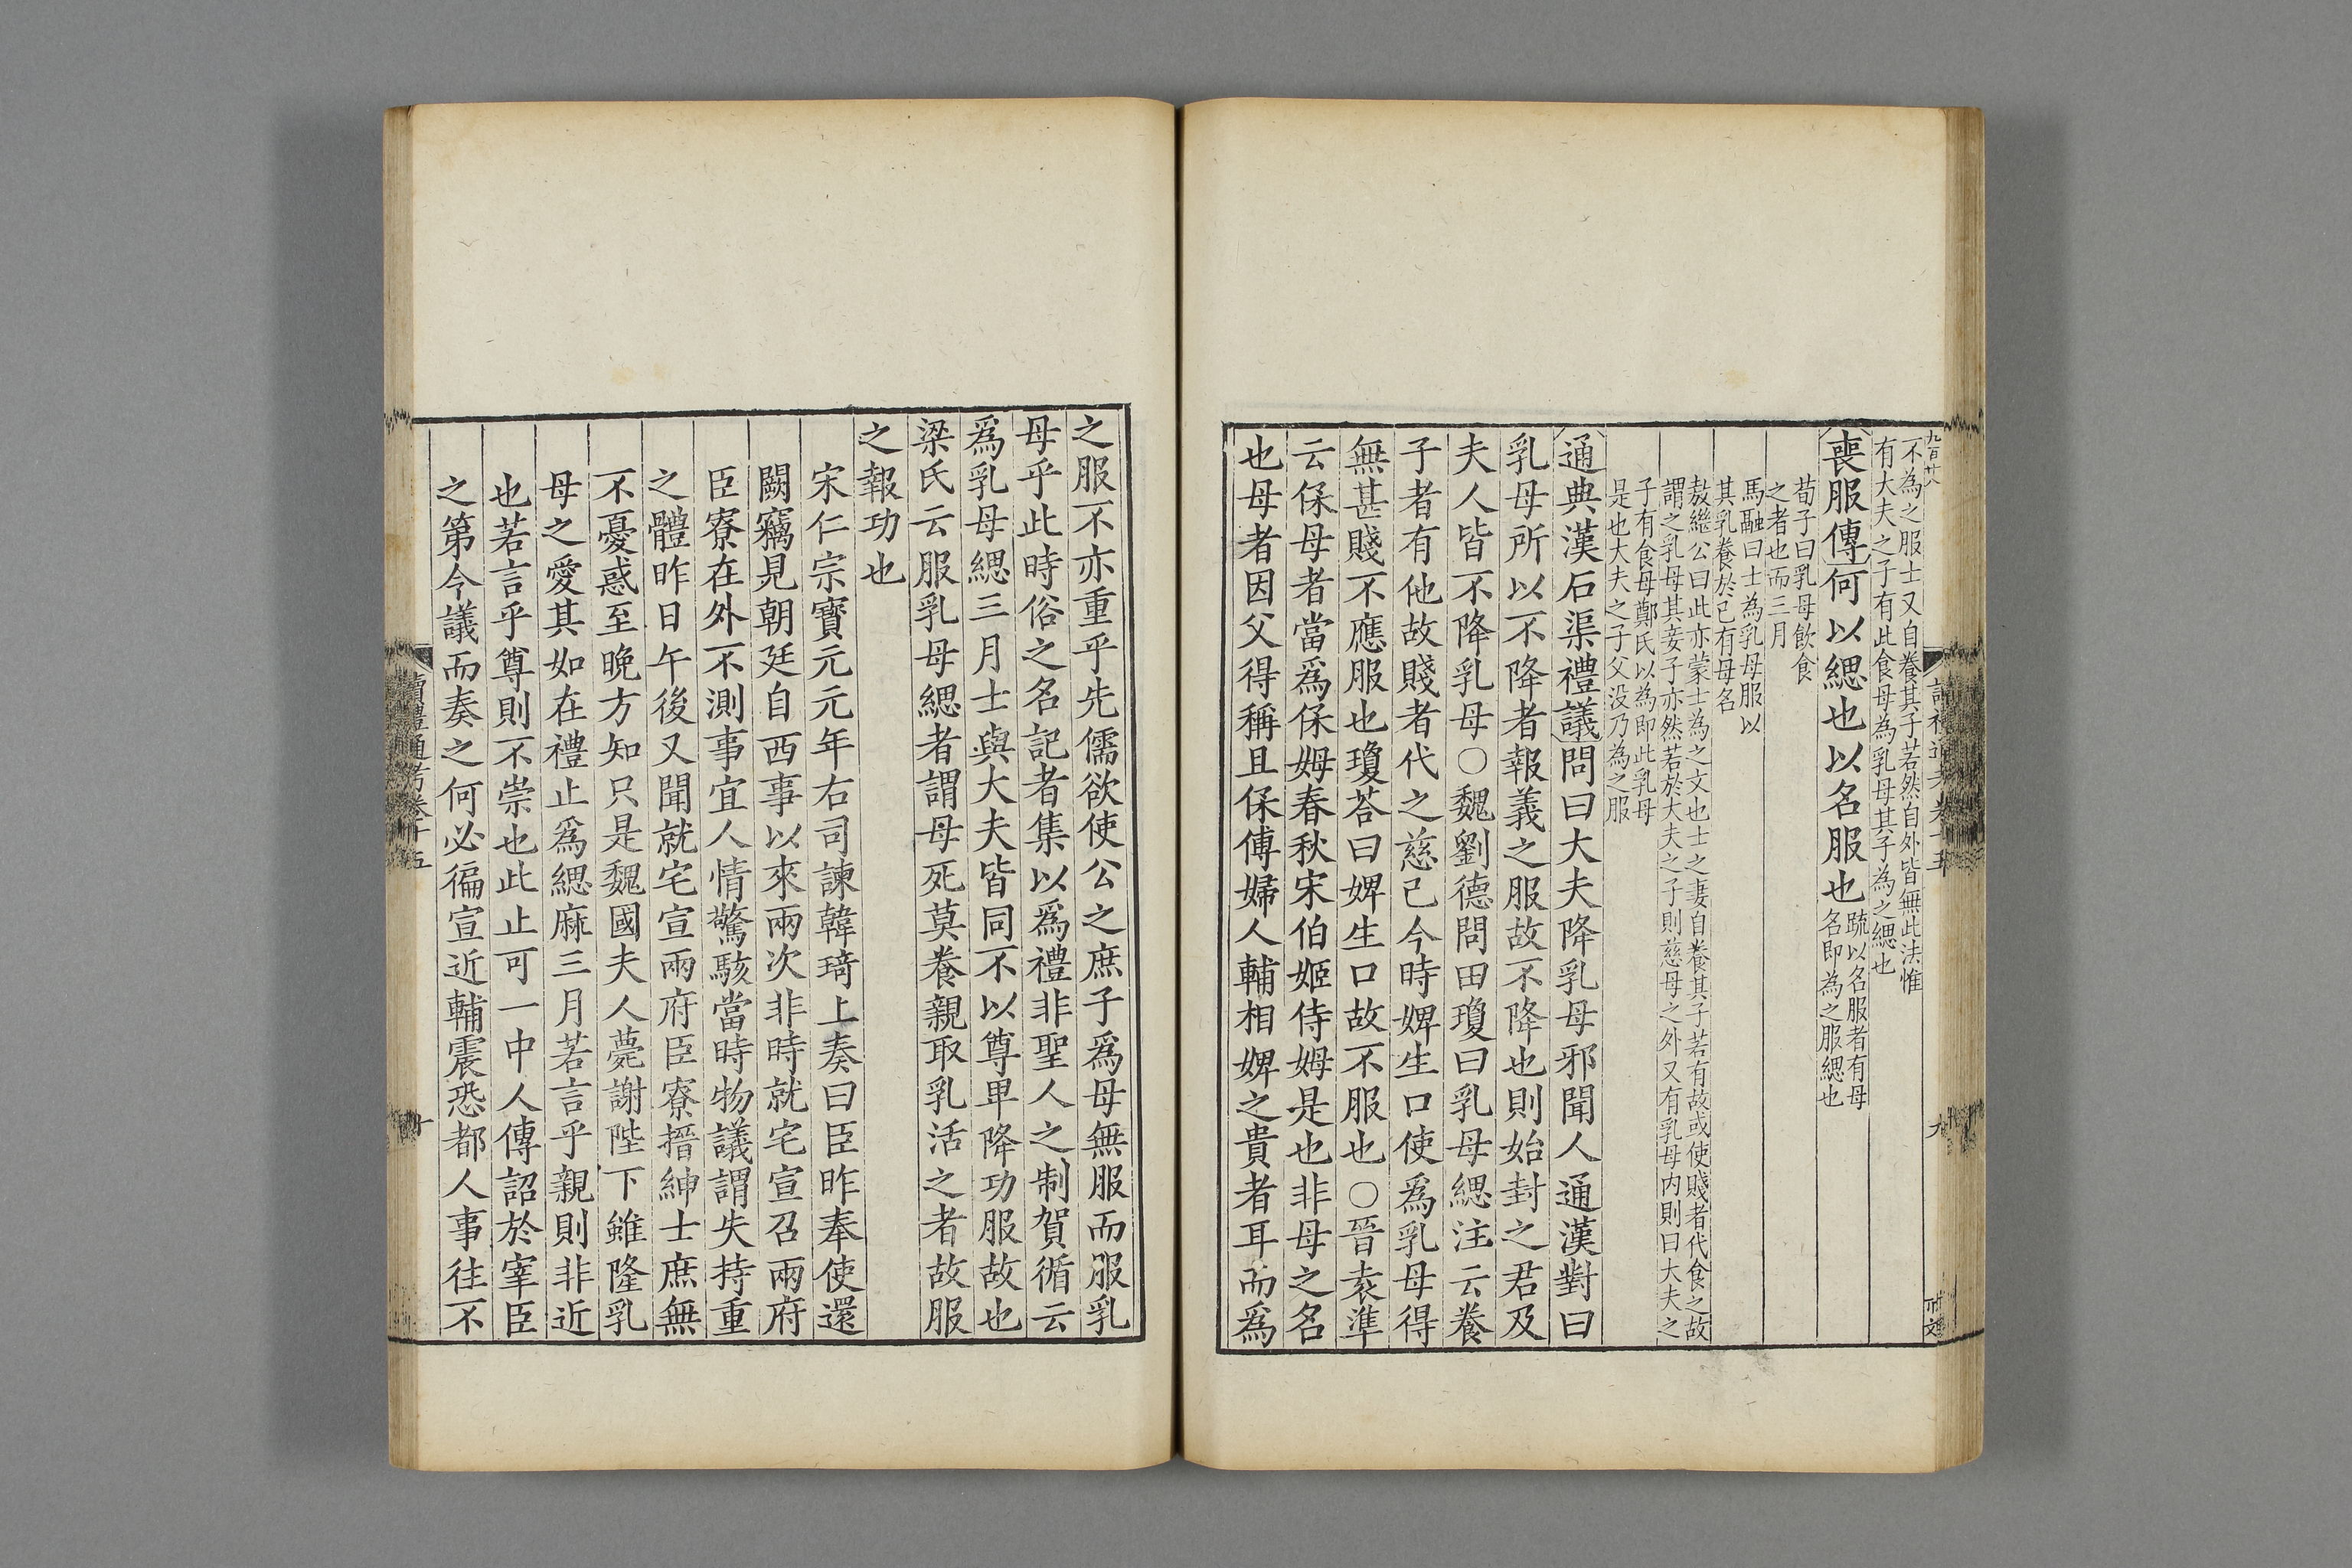 不為之服士又自養其子若然自外皆無此法惟
有大夫之子有此食母為乳母其子為之緦也
喪服傳何以緦也以名服也疏以名服者有母
名即為之服緦也
荀子曰乳母飲食
之者也而三月
馬融曰士為乳母服以
其乳養於己有母名
敖繼公曰此亦蒙士為之文也士之妻自養其子若有故或使賤者代食之故
謂之乳母其妾子亦然若於大夫之子則慈母之外又有乳母内則曰大夫之
子有食母鄭氏以為即此乳母
是也大夫之子父没乃為之服
通典漢石渠禮議問曰大夫降乳母邪聞人通漢對曰
乳母所以不降者報義之服故不降也則始封之君及
夫人皆不降乳母○魏劉德問田瓊曰乳母緦注云養
子者有他故賤者代之慈己今時婢生口使爲乳母得
無甚賤不應服也瓊荅曰婢生口故不服也○晉袁準
云保母者當爲保姆春秋宋伯姬侍姆是也非母之名
也母者因父得稱且保傅婦人輔相婢之貴者耳而爲
之服不亦重乎先儒欲使公之庶子爲母無服而服乳
母乎此時俗之名記者集以爲禮非聖人之制賀循云
爲乳母緦三月士與大夫皆同不以尊卑降功服故也
梁氏云服乳母緦者謂母死莫養親取乳活之者故服
之報功也
宋仁宗寶元元年右司諫韓琦上奏曰臣昨奉使還
闕竊見朝廷自西事以來兩次非時就宅宣召兩府
臣寮在外不測事宜人情驚駭當時物議謂失持重
之體昨日午後又聞就宅宣兩府臣寮搢紳士庶無
不憂惑至晚方知只是魏國夫人薨謝陛下雖隆乳
母之愛其如在禮止爲緦麻三月若言乎親則非近
也若言乎尊則不崇也此止可一中人傳詔於宰臣
之第今議而奏之何必徧宣近輔震恐都人事往不
讀禮通考卷十五
十